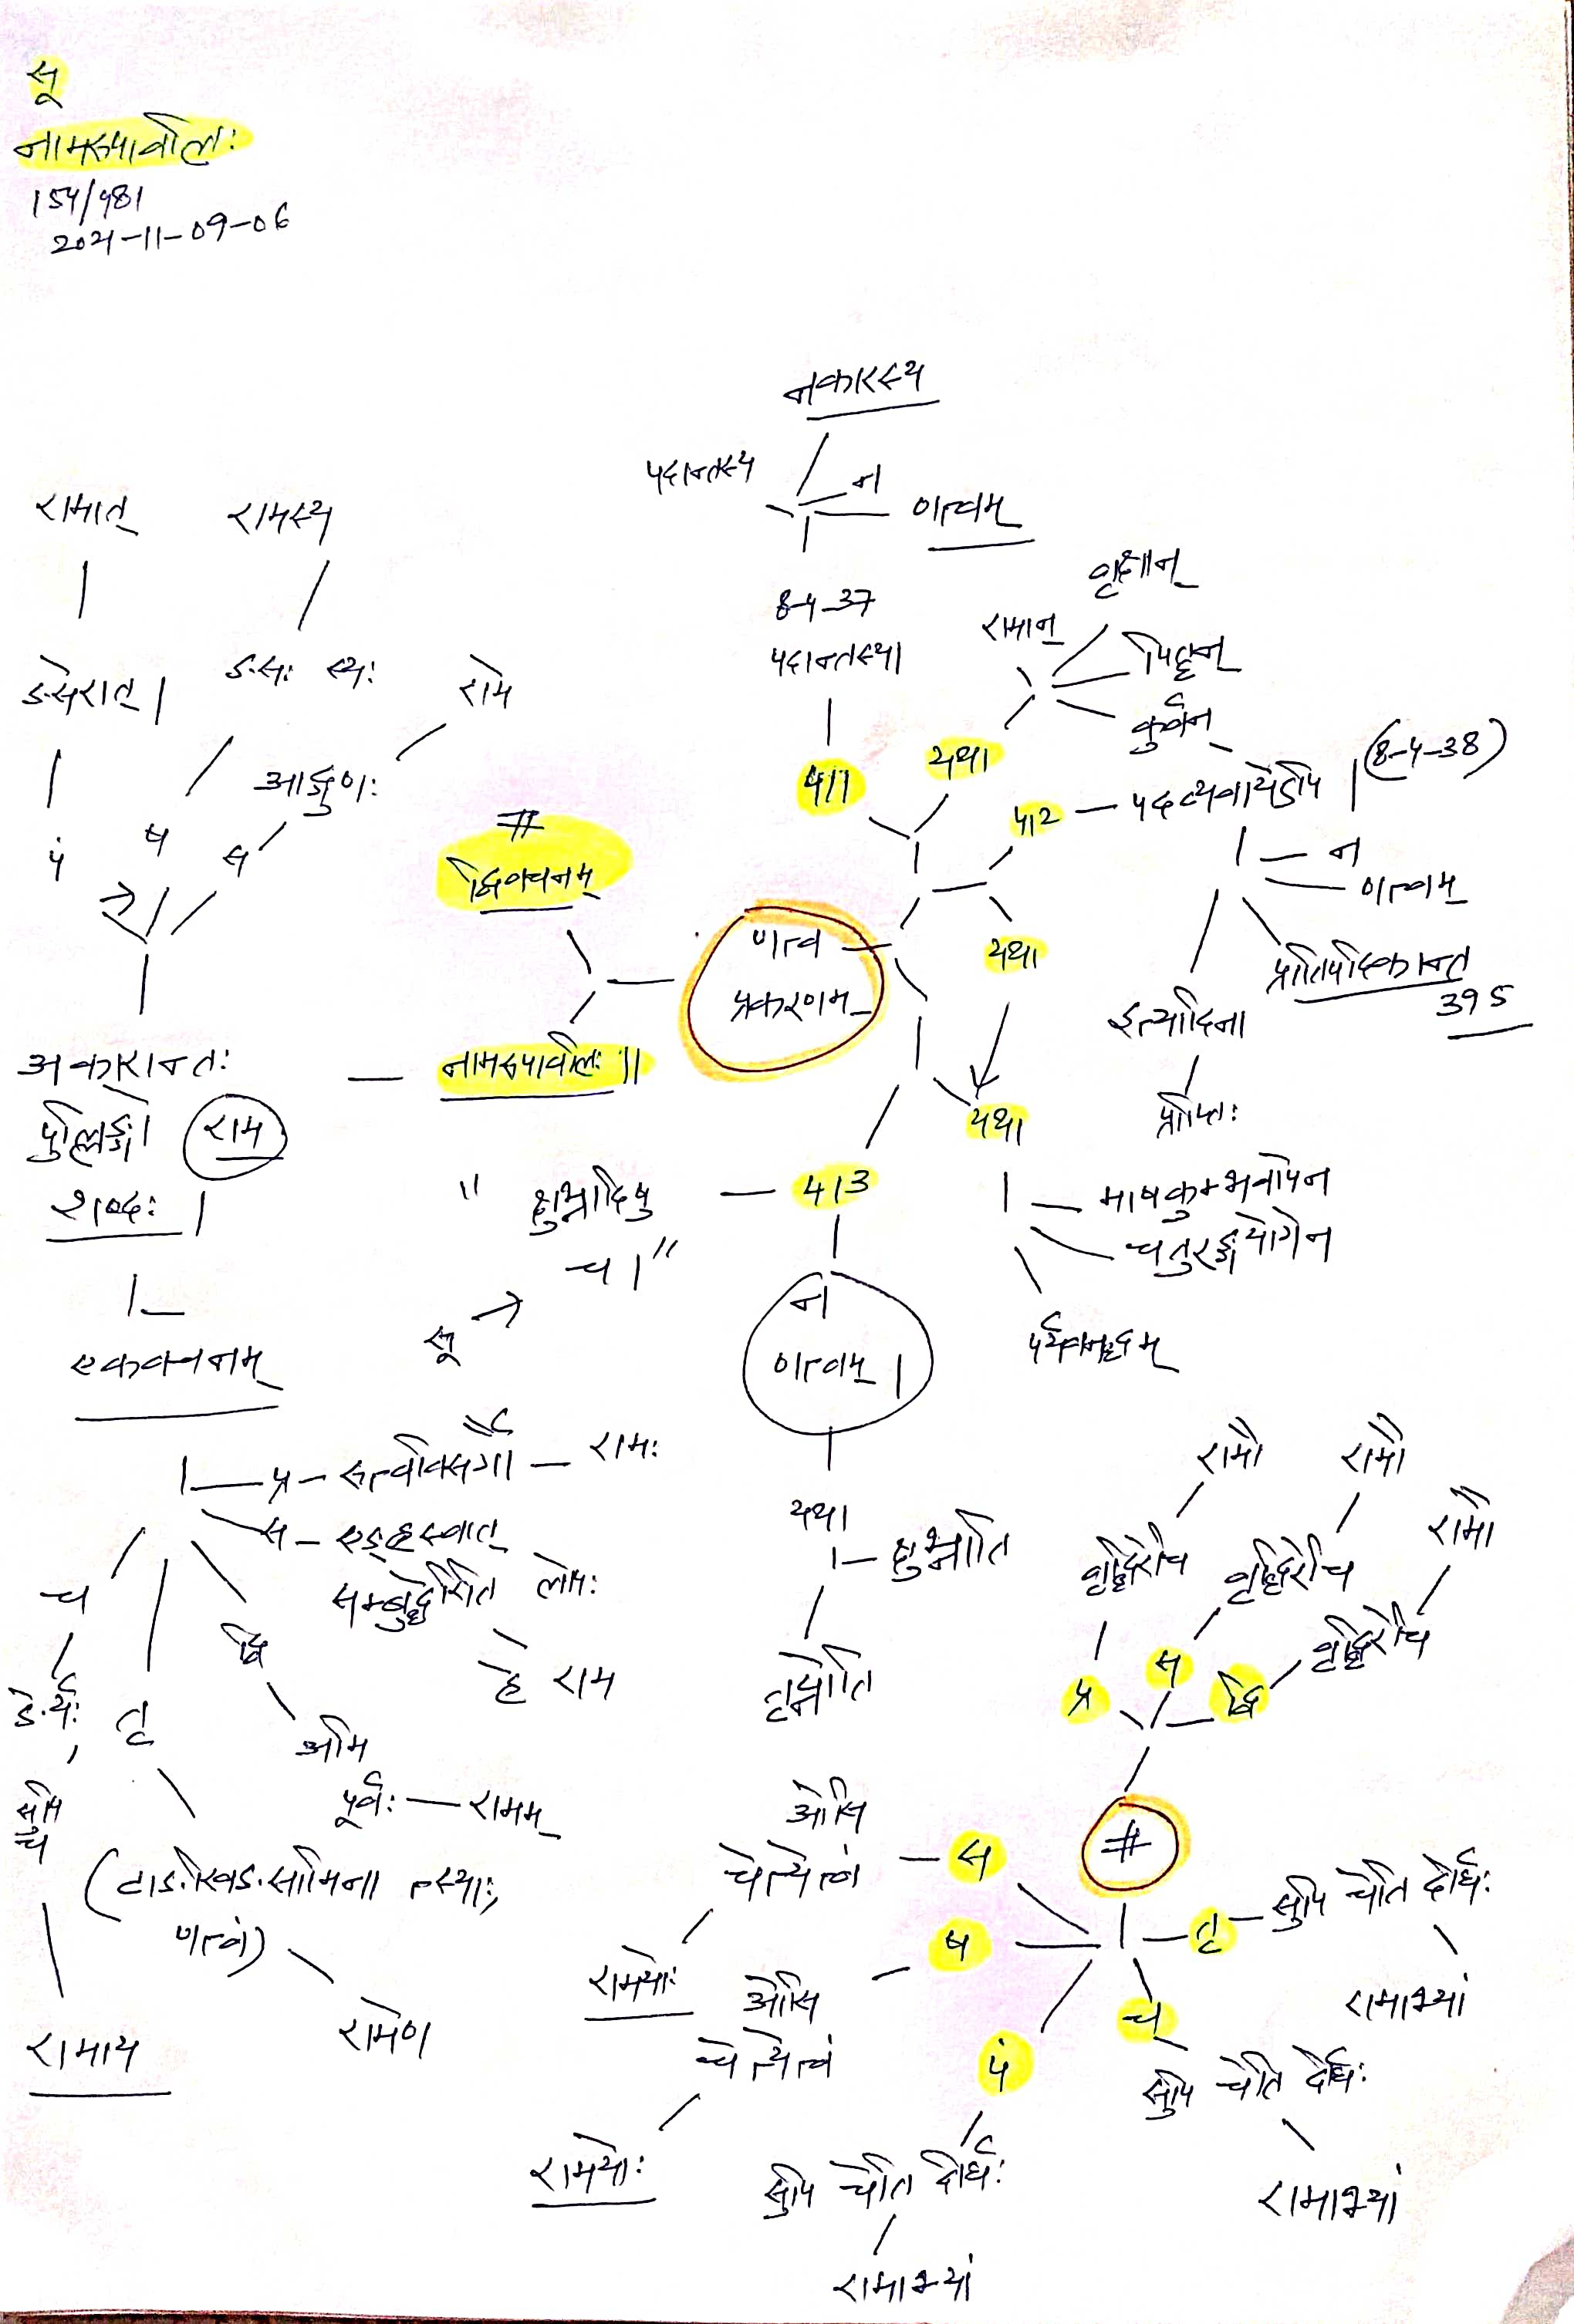 सू
नामरूपावलिः
154/481
2021-11-09-06
नकारस्य
पदान्तस्य
न
णत्वम्
8-4-37
पदान्तस्य।
411
यथा
रामान्
वृक्षान्
पितॄन्
कुर्वन्
412
पदव्यवायेऽपि । (8-4-38)
न
णत्वम्
प्रातिपदिकान्त
395
इत्यादिना
प्राप्तिः
यथा
यथा
माषकुम्भवापेन
चतुरङ्गयोगेन
पर्यवनद्धम्
णत्व
प्रकरणम्
#
द्विवचनम्
नामरूपावलिः ॥
413
" क्षुभ्नादिषु
च।"
सू
न
णत्वम् ।
यथा
क्षुभ्नाति
तृप्नोति
रामात्
रामस्य
ङसेरात् ।
ङसः स्यः
रामे
आद्गुणः
पं
ष
स
अकारान्तः
पुल्लिङ्गो राम
शब्दः ।
एकवचनम्
प्र - रुत्वविसर्गौ - रामः
स - एङ्ह्रस्वात्
सम्बुद्धेरिति लोपः
हे राम
द्वि
अमि
पूर्वः - रामम्
तृ
(टाङसिङसामिनात्स्याः,
णत्वं)
रामेण
च
ङेर्यः,
सुपि
च
रामाय
#
प्र
वृद्धिरेचि
रामौ
स
वृद्धिरेचि
रामौ
द्वि
वृद्धिरेचि
रामौ
तृ
सुपि चेति दीर्घः
रामाभ्यां
च
सुपि चेति दीर्घः
रामाभ्यां
पं
सुपि चेति दीर्घः
रामाभ्यां
ष
ओसि
चेत्येत्वं
रामयोः
स
ओसि
चेत्येत्वं
रामयोः